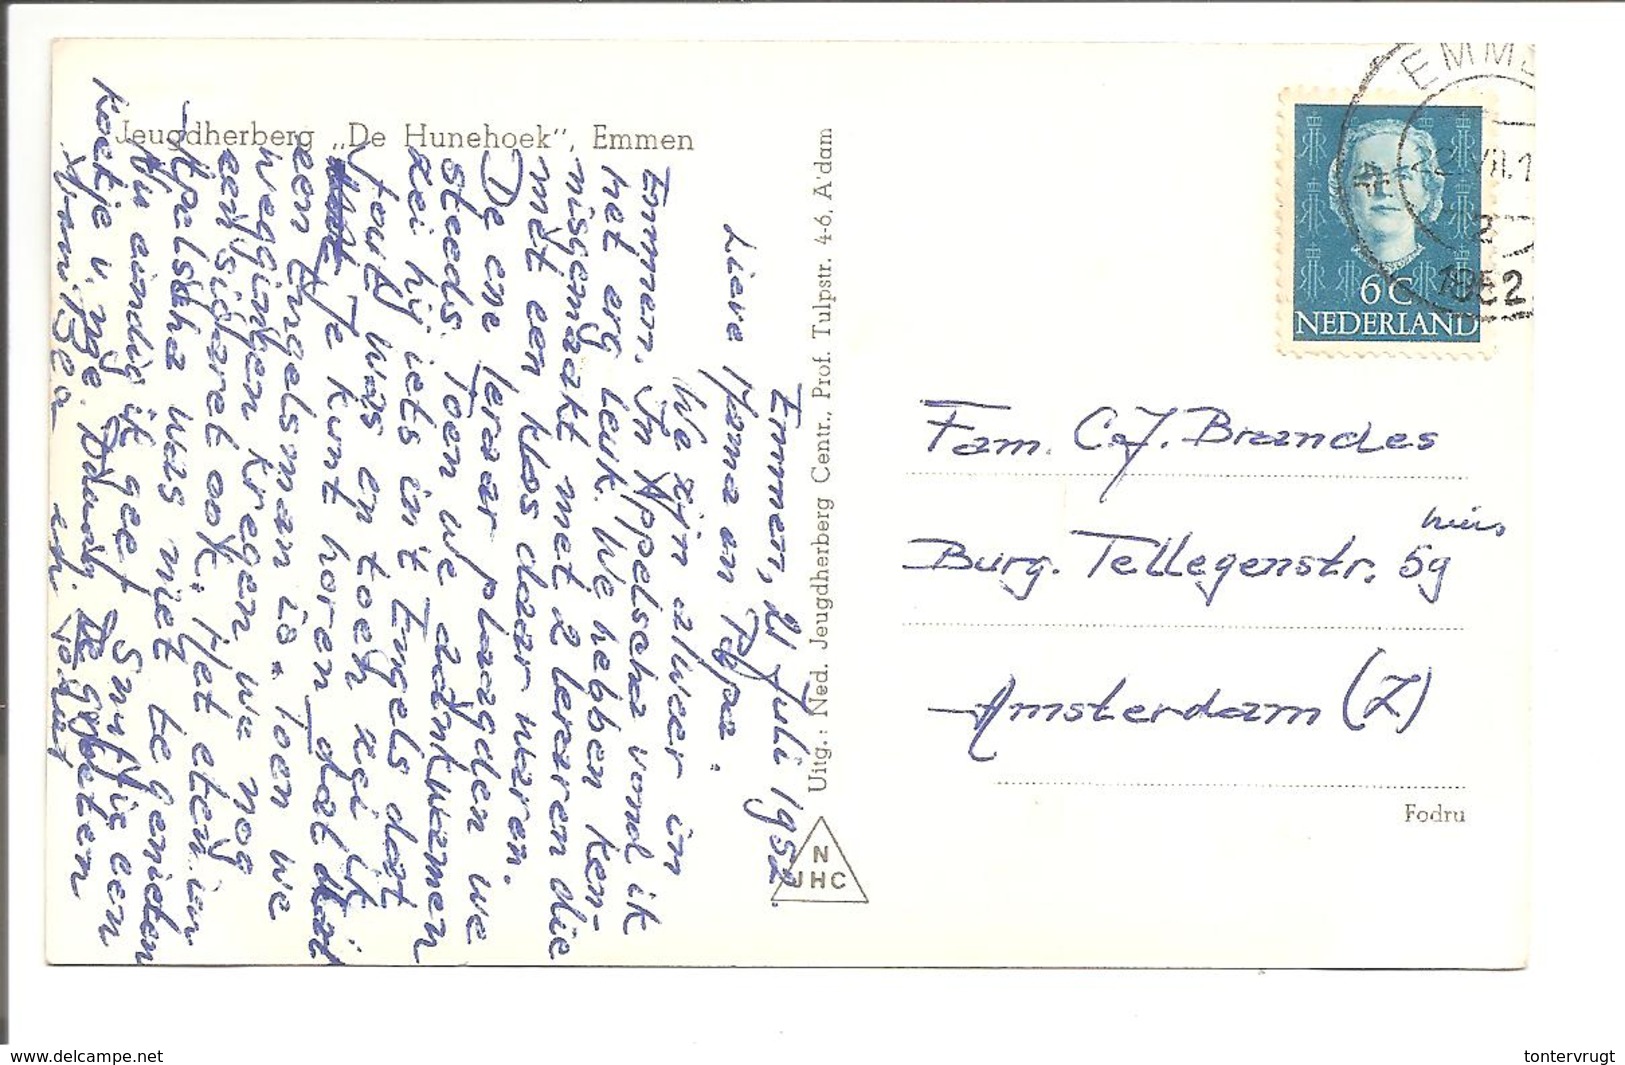 Jeugdherberg „De Hunehoek", Emmen
Emmen, 21 Juli 1952.
Lieve Mama en Papa.
We zijn alweer in
Emmen. In Appelscha vond ik
het erg leuk. We hebben ken-
nisgemaakt met 2 leraren die
met een klas daar waren.
De ene leraar plaagden we
steeds. Toen we aankwamen
zei hij iets in't Engels dat
fout was en toen zei ik
Je kunt horen dat
een Engelsman is. Toen we
weggingen kregen we nog
een sigaret ook. Het eten in
Appelscha was niet te genieten
Nu eindig ik geef Snuitje een
koetje v. mij. Daag. De groeten
van Bea
Uitg.: Ned. Jeugdherberg Centr., Prof. Tulpstr. 4-6, A'dam
N
JHC
EMME
22.VII.1
2
1952
6C
NEDERLAND
Fam. C.J. Brandes
Burg. Tellegenstr. 59 huis
Amsterdam (Z)
Fodru
www.delcampe.net
tontervrugt